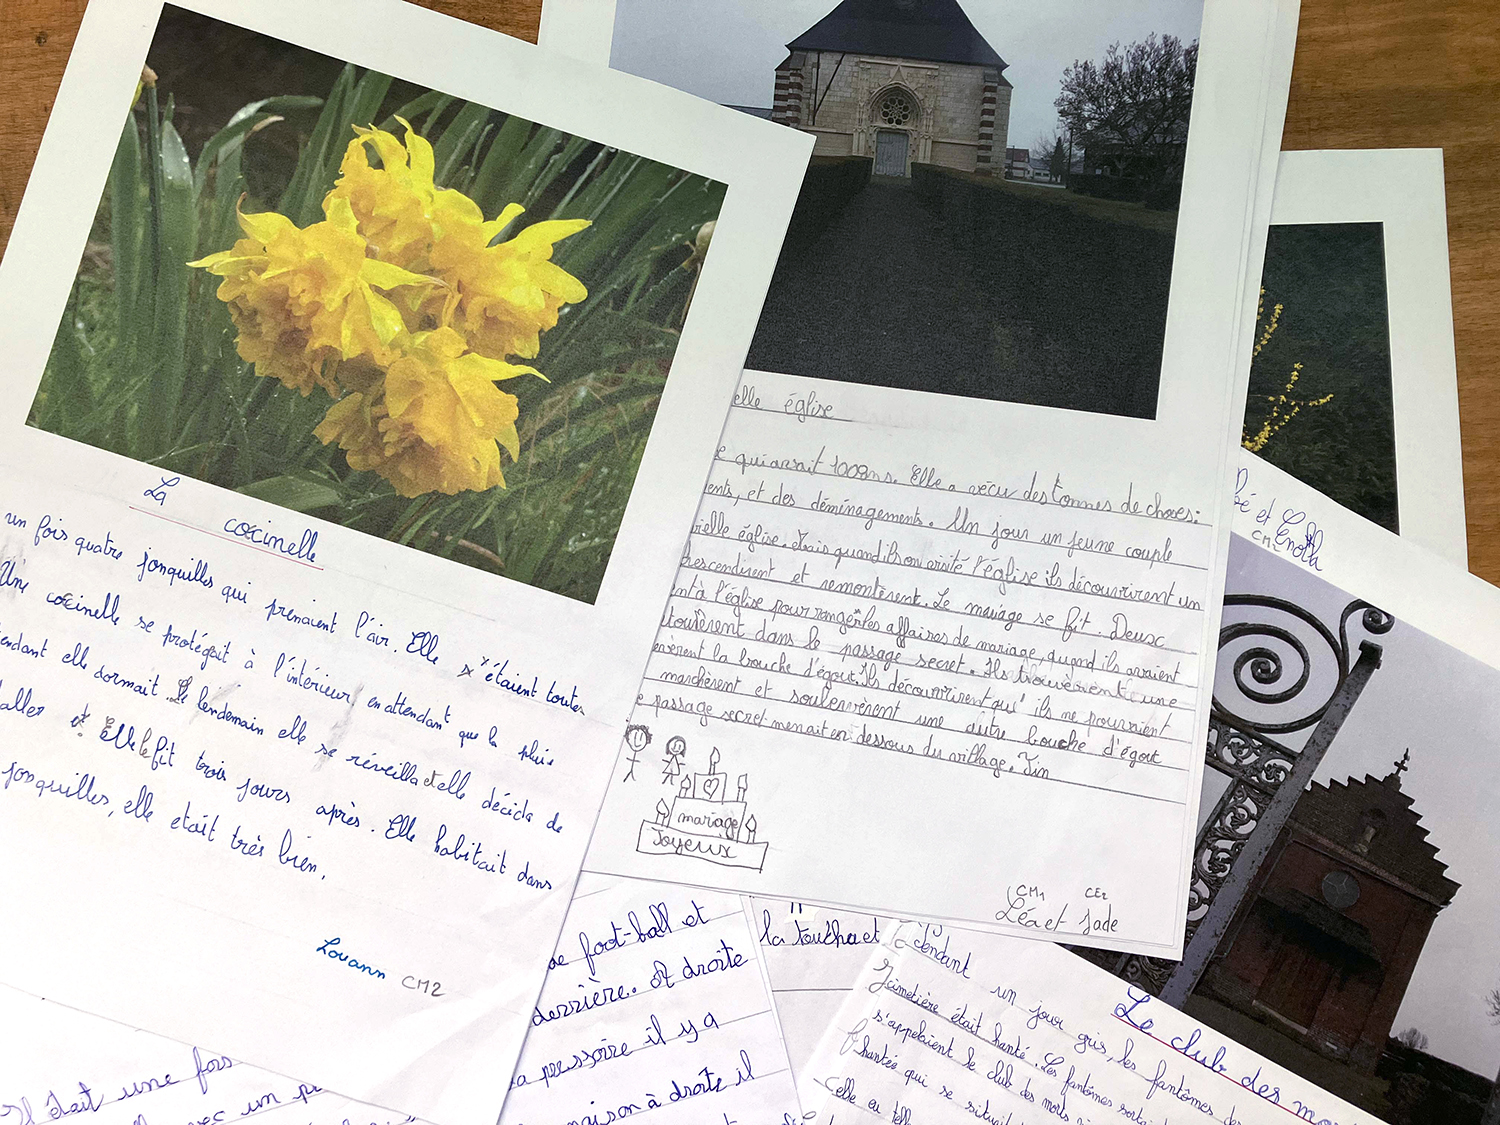 La coccinelle
un fois quatre jonquilles qui prenaient l'air. Elle étaient toutes
Une coccinelle se protégait à l'intérieur en attendant que la pluie
endant elle dormait. Le lendemain elle se réveilla et elle décida de
aller Elle le fit trois jours après. Elle habitait dans
jonquilles, elle etait très bien.
Louann CM2
elle église
e qui avait 100 ans. Elle a vécu des tonnes de choses:
ents, et des déménagements. Un jour un jeune couple
vieille église. Mais quand ils ont visité l'église ils découvrirent un
descendirent et remontèrent. Le mariage se fit. Deux
nt à l'église pour ranger les affaires de mariage, quand ils avaient
touvèrent dans le passage secret. Ils trouvèrent une
evèrent la bouche d'égout. Ils découvrirent qu'ils ne pouvaient
marchèrent et soulevèrent une autre bouche d'égout
e passage secret menait en dessous du village. Fin
mariage
Joyeux
CM1 CE2
Léa et Jade
bé et Enola
CM
de foot-ball et
derrière. A droite
a pressoire il y a
maison à droite il
la et
Le club des mo
Pendant un jour gris, les fantômes de
cimetière était hanté. Les fantômes
s'appelaient le club des morts
hantée qui se situait
celle
Il était une fois
avec un p